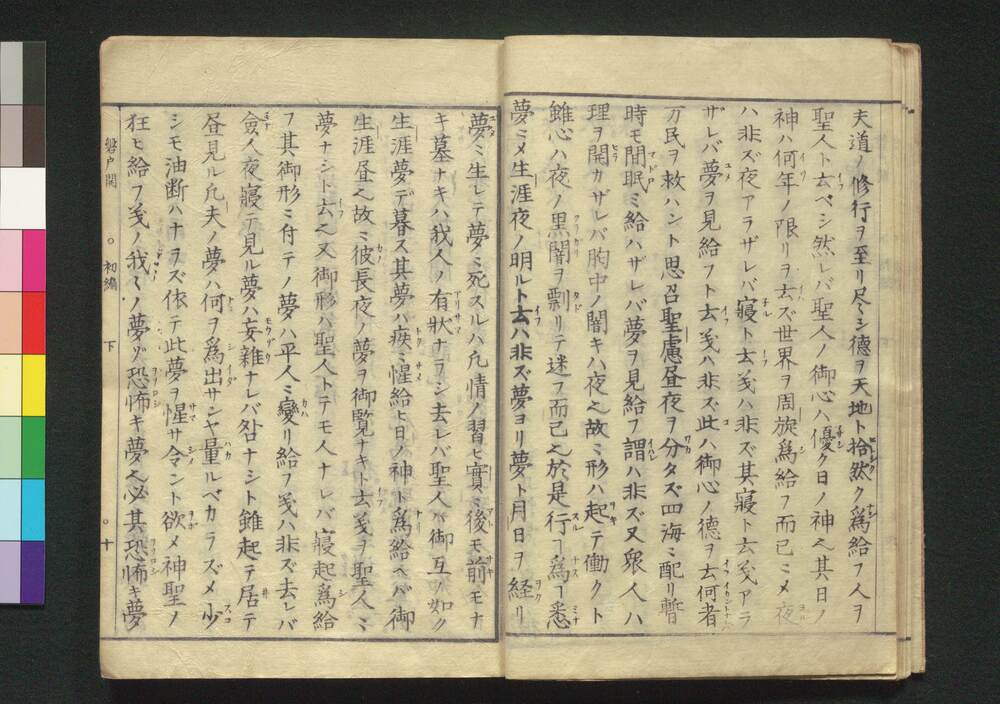 夫道ノ修行ヲ至リ尽ミシ徳ヲ天地ト拾然ク為給フ人ヲ
聖人ト云ベシ然レバ聖人ノ御心ハ優ク日ノ神之其日ノ
神ハ何年ノ限リヲ云ズ世界ヲ周旋為給フ而已ミメ夜
ハ非ズ夜アラザレバ寝ト云㕝ハ非ズ其寝ト云㕝アラ
ザレバ夢ヲ見給フト云㕝ハ非ズ此ハ御心ノ徳ヲ云何者
万民ヲ救ハント思召聖慮昼夜ヲ分タズ四海ミ配リ暫
時モ間眠ミ給ハザレバ夢ヲ見給フ謂ハ非ズ又衆人ハ
理ヲ開カザレバ胸中ノ闇キハ夜之故ミ形ハ起テ働クト
雖心ハ夜ノ黒闇ヲ剽リテ迷フ而已之於是行ヿ為ヿ悉
夢ミメ生涯夜ノ明ルト云ハ非ズ夢ヨリ夢ト月日ヲ経リ
夢ミ生レテ夢ミ死スルハ凡情ノ習ヒ實ミ後モ前モナ
キ墓ナキハ我人ノ有状ナラシ去レバ聖人ハ御互ノ如ク
生涯夢デ暮ス其夢ハ疾ミ惺給ヒ日ノ神ト為給ヘバ御
生涯昼之故ミ彼長夜ノ夢ヲ御覧ナキト云㕝ヲ聖人ミ
夢ナシト云之又御形ハ聖人トテモ人ナレバ寝起為給
フ其御形ミ付テノ夢ハ平人ミ變リ給フ㕝ハ非ズ去レバ
僉人夜寝テ見ル夢ハ妄雑ナレバ咎ナシト雖起テ居テ
昼見ル凡夫ノ夢ハ何ヲ為出サンヤ量ルベカラズメ少
シモ油断ハナヲズ依テ此夢ヲ惺サ令ント欲メ神聖ノ
狂ヒ給フ㕝ノ我ミノ夢ゾ恐怖キ夢之必其恐怖キ夢
磐戸開 ○ 初編 下 ○十